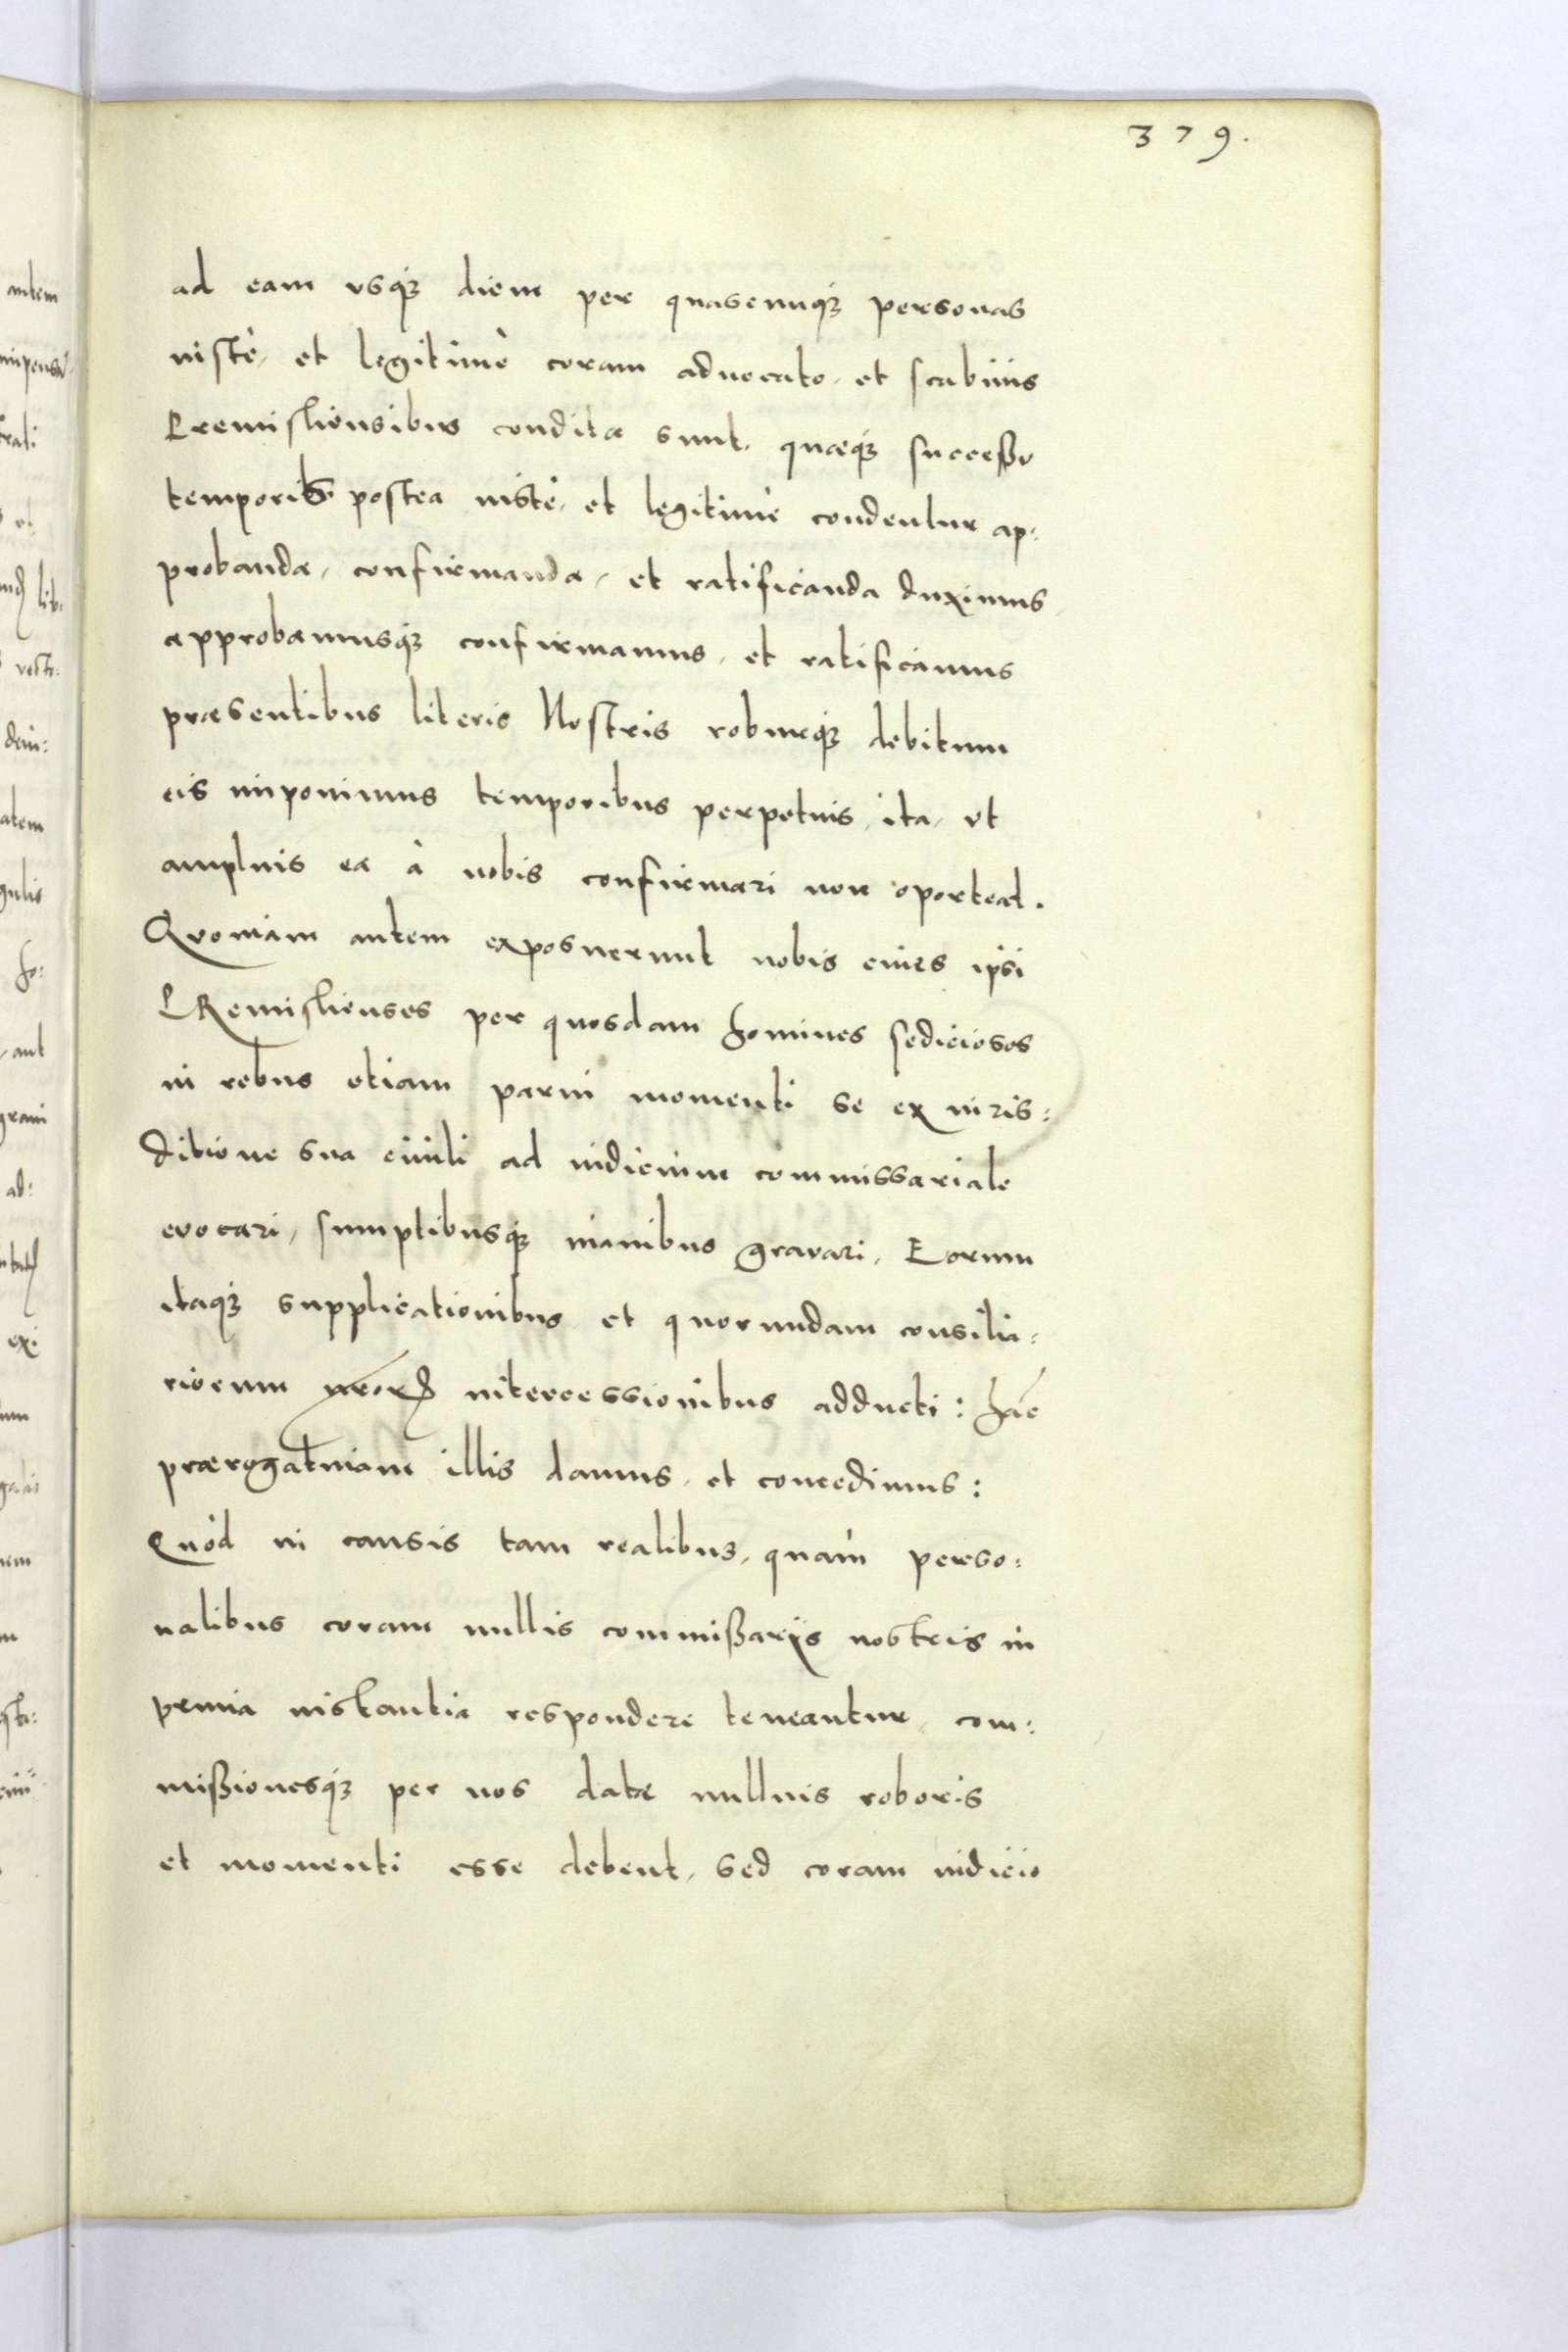 379.
ad eam vsq́ꝫ diem per quascunq́ꝫ personas
iustè, et legitimè coram aduocato, et scabinis
Premisliensibus condita sunt, quæq́ꝫ successu
temporis postea iustè, et legitimè condentur ap:
probanda, confirmanda, et ratificanda duximus,
approbamusq́ꝫ confirmamus, et ratificamus
præsentibus literis Nostris roburq́ꝫ debitum
eis imponimus temporibus perpetuis, ita, vt
amplius ea à nobis confirmari non oporteat.
Quoniam autem exposuerunt nobis ciues ipsi
PRemislienses per quosdam homines sediciosos
in rebus etiam parui momenti se ex iuris:
ditione sua ciuili ad iudicium commissariale
evocari, sumptibusq́ꝫ inanibus gravari, Eorum
itaq́ꝫ supplicationibus et quorundam consilia:
riorum nr̄orꝝ intercessionibus adducti: hac
prærogatiuam illis damus, et concedimus:
Quòd in causis tam realibus, quàm perso:
nalibus coram nullis commißarijs nostris in
prima instantia respondere teneantur, com:
mißionesq́ꝫ per nos datæ nullius roboris
et momenti esse debent, sed coram iudicio
autem
impensa
trali
et
lib:
vestr:
dein:
atem
gulis
ho:
aut
graui
ad:
exi